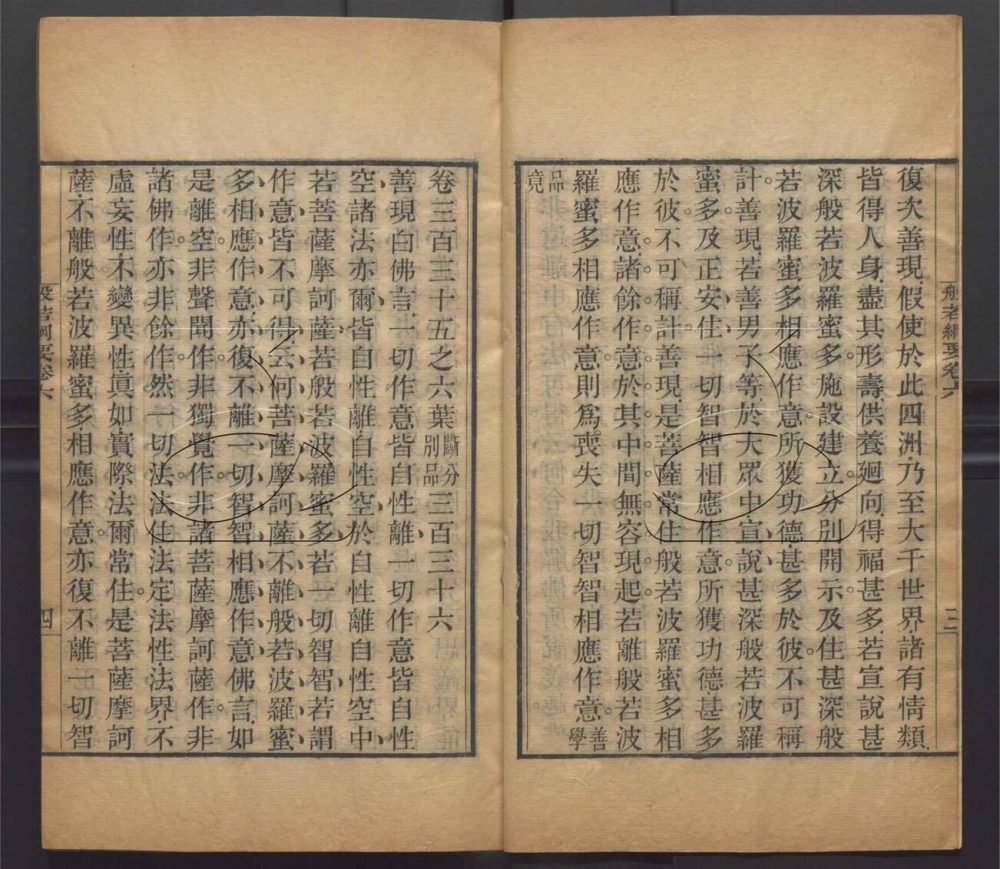 復次善現假使於此四洲乃至大千世界諸有情類
皆得人身盡其形壽供養迴向得福甚多若宣說甚
深般若波羅蜜多施設建立分別開示及住甚深般
若波羅蜜多相應作意所獲功德甚多於彼不可稱
計善現若善男子等於大眾中宣說甚深般若波羅
蜜多及正安住一切智智相應作意所獲功德甚多
於彼不可稱計善現是菩薩常住般若波羅蜜多相
應作意諸餘作意於其中間無容現起若離般若波
羅蜜多相應作意則為喪失一切智智相應作意善學
品竟
般若綱要卷六
三
卷三百三十五之六葉斷分別品三百三十六
善現白佛言一切作意皆自性離一切作意皆自性
空諸法亦爾皆自性離自性空於自性離自性空中
若菩薩摩訶薩若般若波羅蜜多若一切智智若謂
作意皆不可得云何菩薩摩訶薩不離般若波羅蜜
多相應作意亦復不離一切智智相應作意佛言如
是離空非聲聞作非獨覺作非諸菩薩摩訶薩作非
諸佛作亦非餘作然一切法法住法定法性法界不
虛妄性不變異性真如實際法爾常住是菩薩摩訶
薩不離般若波羅蜜多相應作意亦復不離一切智
般若綱要卷六
四